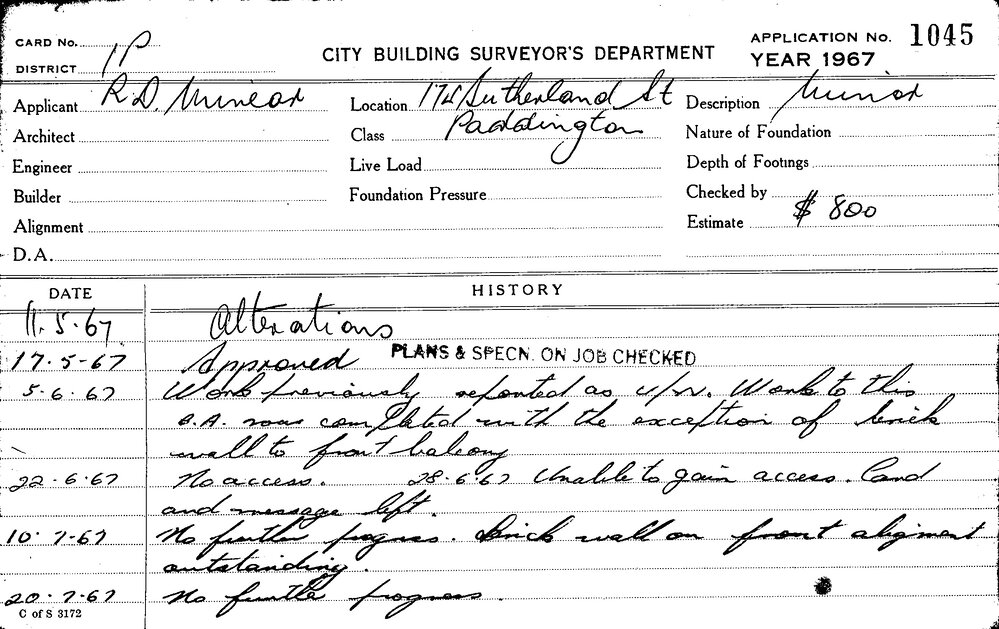 CARD No.
DISTRICT 1P
CITY BUILDING SURVEYOR'S DEPARTMENT
APPLICATION No. 1045
YEAR 1967
Applicant R.D. Minear
Location 174 Sutherland St
Paddington
Description Minor
Architect
Class
Nature of Foundation
Engineer
Live Load
Depth of Footings
Builder
Foundation Pressure
Checked by
Alignment
Estimate $ 800
D.A.
DATE HISTORY
11.5.67 Alterations
17.5-67 Approved PLANS & SPECN. ON JOB CHECKED
5.6.67 Work previously reported as U/W. Work to this
B.A. was completed with the exception of brick
wall to front balcony
22.6.67 No access. 28.6.67 Unable to gain access. Card
and message left.
10.7.67 No further progress. Brick wall on front aligment
outstanding.
20.7.67 No further progress.
C of S 3172